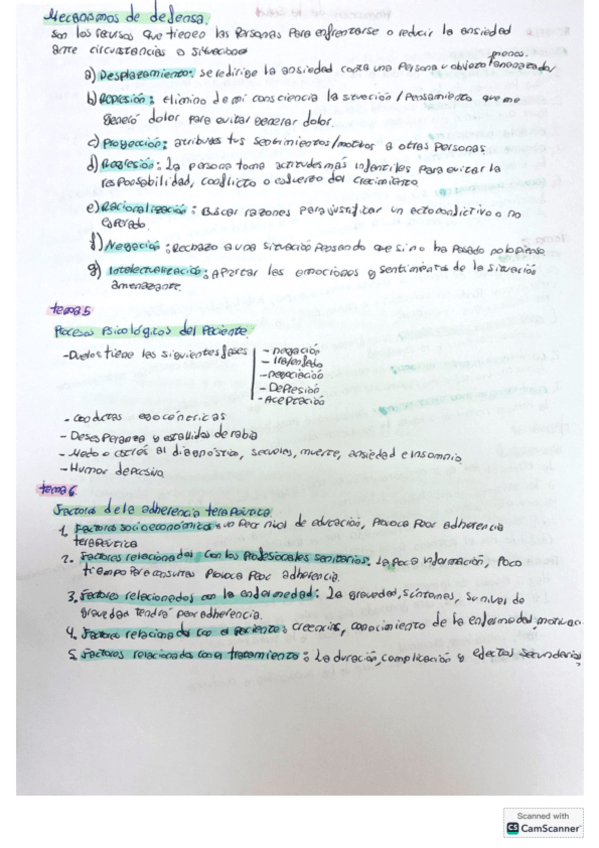 Mecanismos de defensa.
Son los recursos que tienen las personas para enfrentarse o reducir la ansiedad
ante circunstancias o situaciones
a) Desplazamiento: se redirige la ansiedad contra una persona u objeto menos amenazador
b) Represión: elimino de mi consciencia la situación / pensamiento que me
generó dolor para evitar generar dolor.
c) Proyección: atribuyes tus sentimientos/motivos a otras personas
d) Regresión: La persona toma actitudes más infantiles para evitar la
responsabilidad, conflicto o esfuerzo del crecimiento
e) Racionalización: Buscar razones para justificar un acto conflictivo o no
esperado.
f) Negación: Rechazo a una situación pensando que si no ha pasado no lo pienso
g) Intelectualización: Apartar las emociones y sentimientos de la situación
amenazante.
tema 5
Procesos Psicológicos del Paciente.
- Duelos tiene las siguientes fases
- negación
- negociación
- Depresión
- Aceptación
- conductas egocéntricas
- Desesperanza y estallidos de rabia
- Miedo o estrés al diagnóstico, secuelas, muerte, ansiedad e insomnio
- Humor depresivo
tema 6
Factores de la adherencia terapéutica
1. Factores socioeconómicos: un peor nivel de educación, provoca peor adherencia
terapéutica
2. Factores relacionados con los profesionales sanitarios: La poca información, poco
tiempo para consultas provoca peor adherencia.
3. Factores relacionados con la enfermedad: La gravedad, síntomas, su nivel de
gravedad tendrá peor adherencia.
4. Factores relacionados con el paciente: creencias, conocimiento de la enfermedad, motivación
5. Factores relacionados con el tratamiento: La duración, complicación y efectos secundarios
Scanned with
CS CamScanner